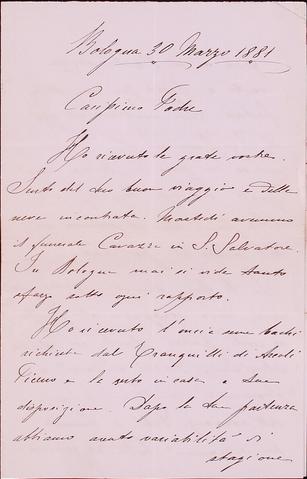 Bologna 30 Marzo 1881
Carissimo Padre
Ho ricevuto le grate vostre.
Sento del suo buon viaggio e della
neve incontrata. Martedì avemmo
il funerale Cavazza in S. Salvatore.
In Bologna mai si vide tanto
sfarzo sotto ogni rapporto.
Ho ricevuto l'oncia seme bachi
richiesta dal Tranquilli di Ascoli
Piceno e la tengo in casa a Sua
disposizione. Dopo la sua partenza
abbiamo avuto variabilità di
stagione